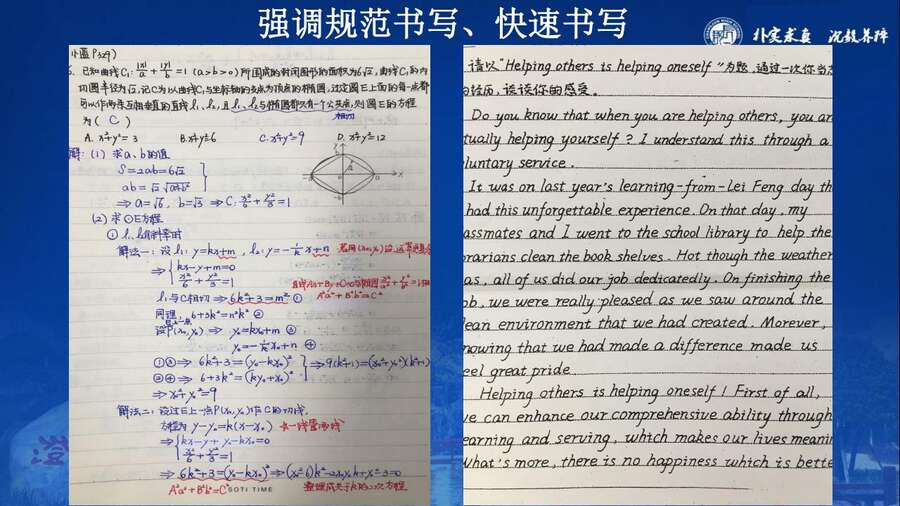 强调规范书写、快速书写
朴实求真 沉毅养障
小蓝P329)
5. 已知曲线C₁: |x|/a + |y|/b = 1 (a>b>0) 所围成的封闭图形的面积为6√2, 曲线C₁的内
切圆半径为√2, 记C为以曲线C₁与坐标轴的交点为顶点的椭圆, 过定圆E上面的每一点都
可以作两条互相垂直的直线l₁、l₂, 且l₁、l₂与椭圆都只有一个公共点, 则圆E的方程
相切
为 ( C )
A. x²+y²=3 B. x²+y²=6 C. x²+y²=9 D. x²+y²=12
解: (1) 求a、b的值
S=2ab=6√2
ab=√2 √(a²+b²)
⇒ a=√6, b=√3 ⇒ C: x²/6 + y²/3 = 1
(2) 求⊙E方程
① l₁、l₂有斜率时
解法一: 设 l₁: y=kx+m, l₂: y=-1/k x+n
⇒ { kx-y+m=0
x²/6 + y²/3 = 1
A²a²+B²b²=C²
l₁与C相切 ⇒ 6k²+3=m² ①
同理, 6+3k²=n²k² ②
设P(x₀,y₀) ⇒ y₀=kx₀+m ③
y₀=-1/k x₀+n ④
①③ ⇒ 6k²+3=(y₀-kx₀)²
②④ ⇒ 6+3k²=(ky₀+x₀)²
⇒ 9(k²+1)=(x₀²+y₀²)(k²+1)
⇒ x₀²+y₀²=9
解法二: 设过E上一点P(x₀,y₀)作C的切线,
方程为 y-y₀=k(x-x₀) 一线量两线
⇒ { kx-y+y₀-kx₀=0
x²/6 + y²/3 = 1
⇒ 6k²+3=(y₀-kx₀)² ⇒ (x₀²-6)k²-2x₀y₀k+y₀²-3=0
A²a²+B²b²=C² GOTI TIME 整理成关于k的二次方程
请以"Helping others is helping oneself"为题, 通过一次你当志
的经历, 谈谈你的感受。
Do you know that when you are helping others, you are
tually helping yourself? I understand this through a
luntary service.
It was on last year's learning-from-Lei Feng day th
had this unforgettable experience. On that day, my
assmates and I went to the school library to help the
brarians clean the book shelves. Hot though the weather
as, all of us did our job dedicatedly. On finishing the
ob, we were really pleased as we saw around the
lean environment that we had created. Morever,
nowing that we had made a difference made us
eel great pride.
Helping others is helping oneself! First of all,
we can enhance our comprehensive ability through
earning and serving, which makes our lives meanin
What's more, there is no happiness which is bette